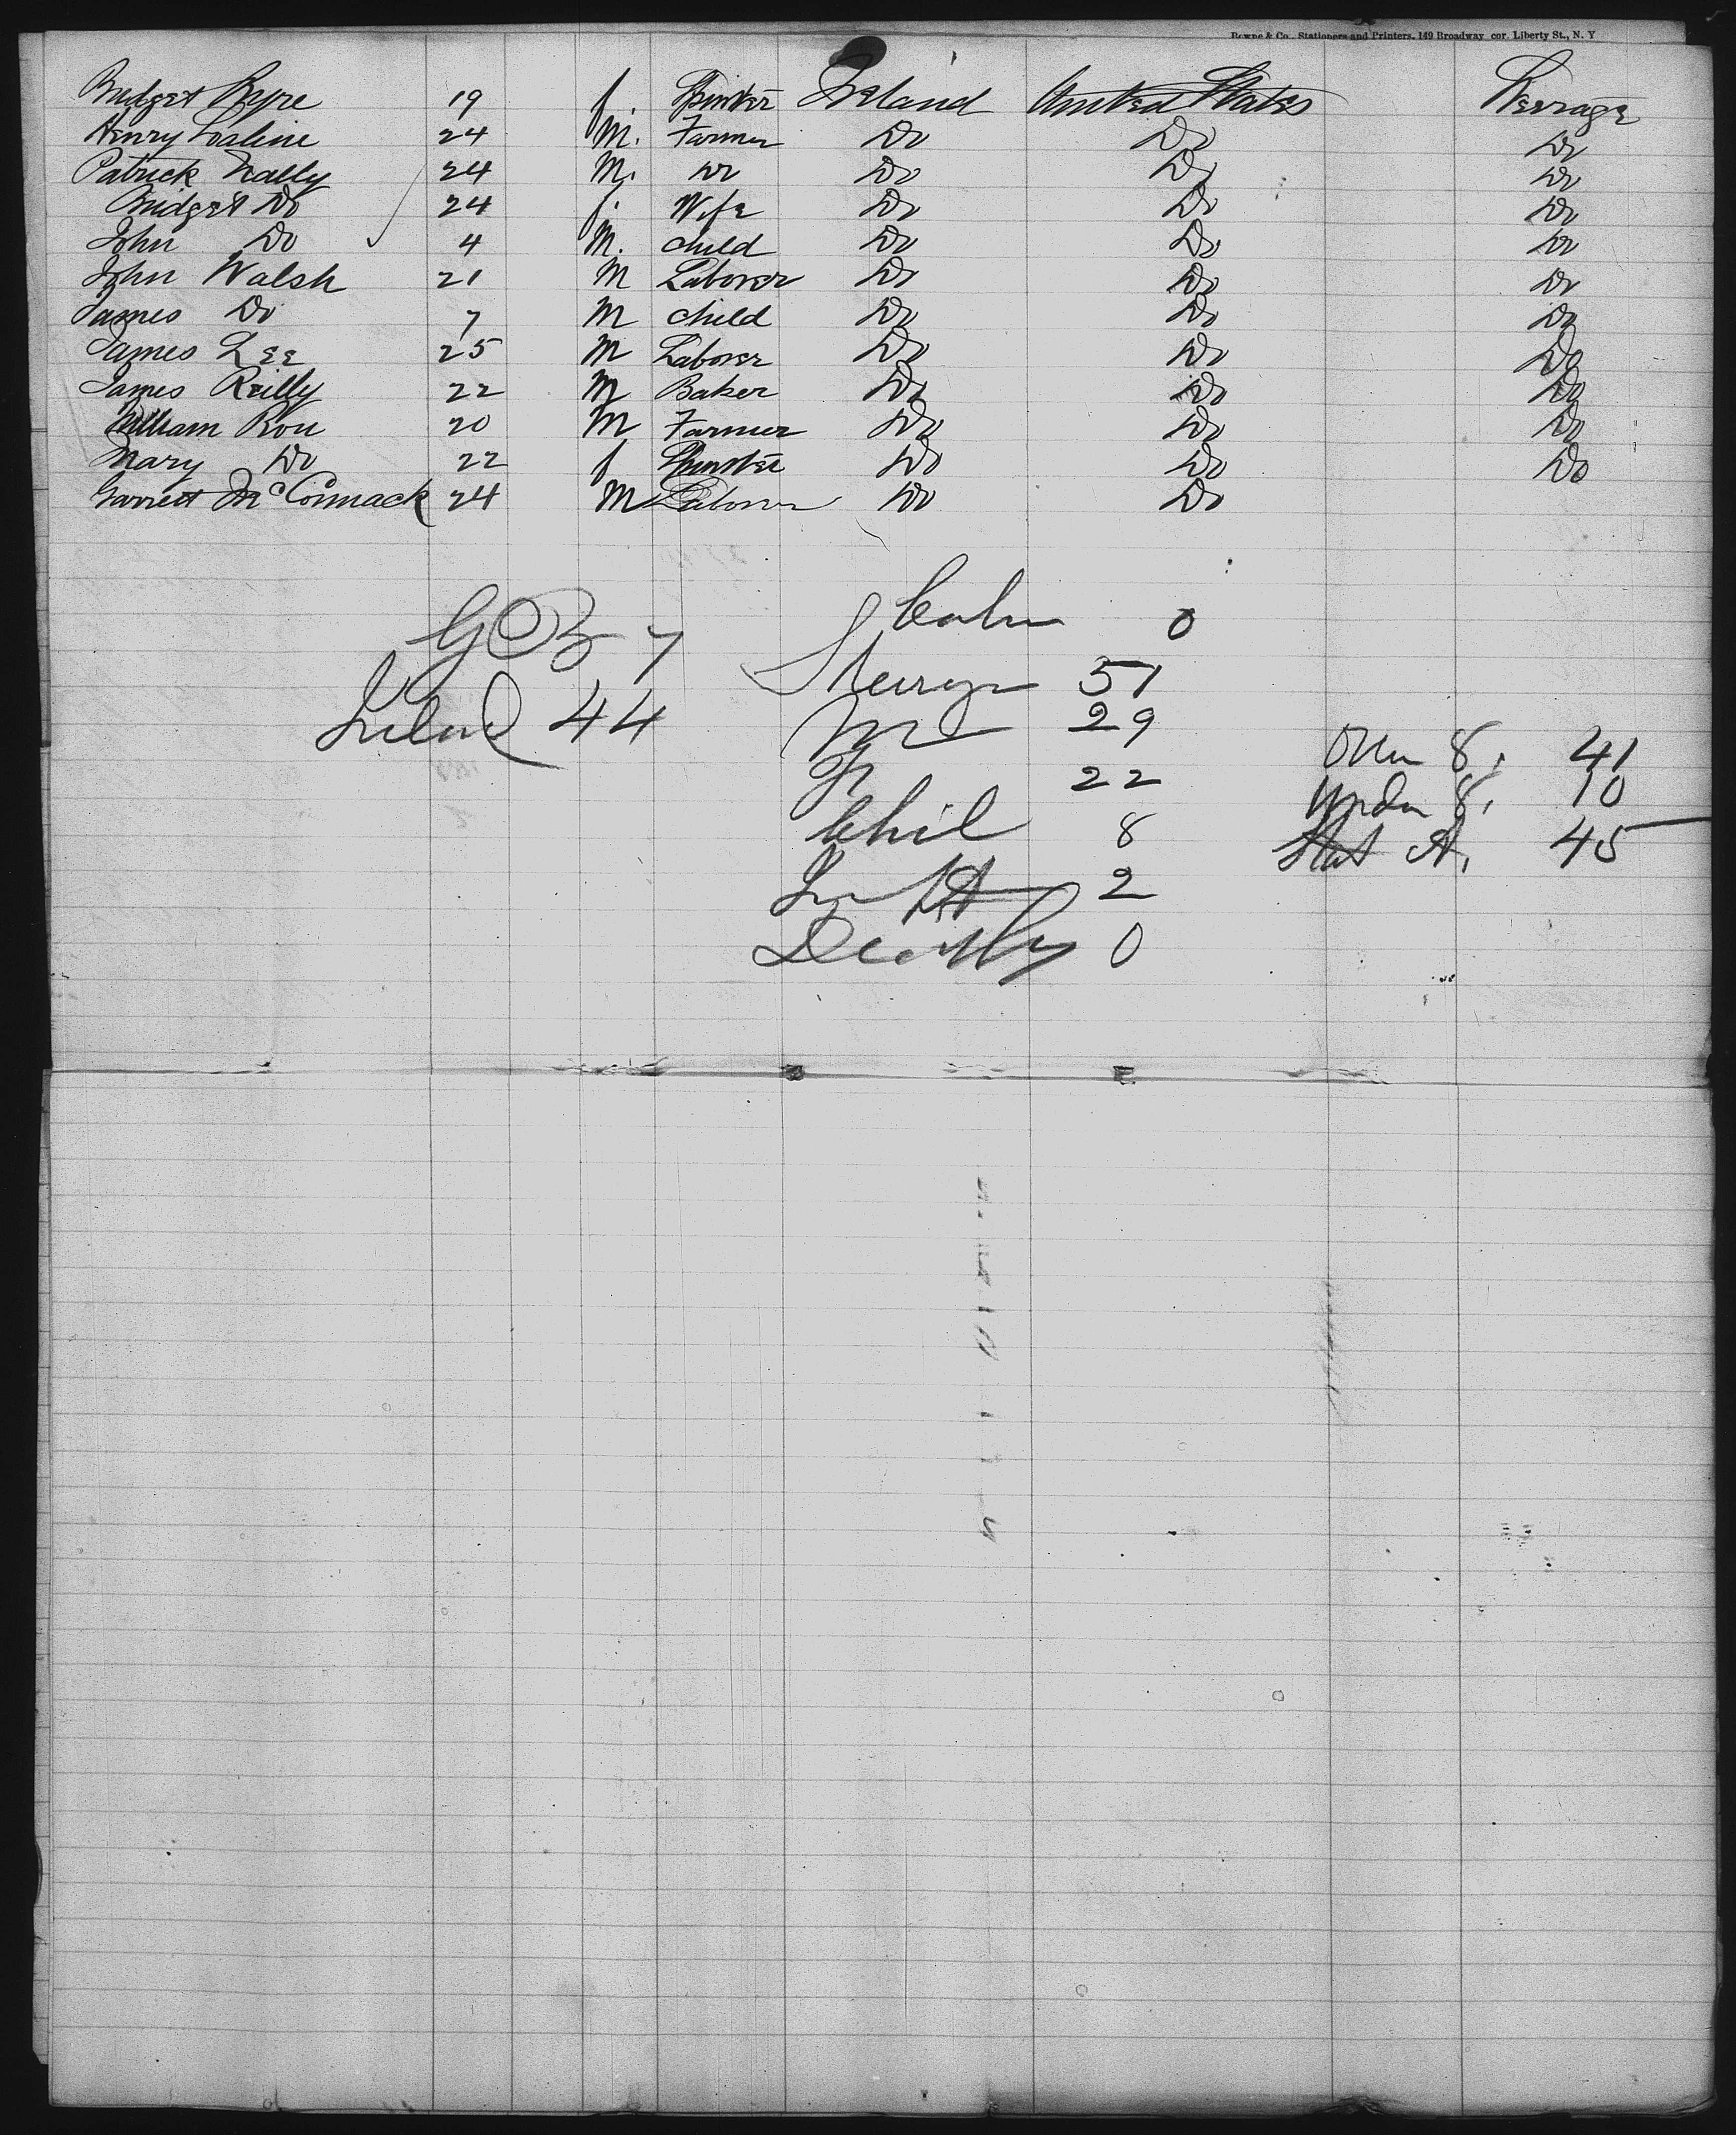 Bowne & Co., Stationers and Printers, 149 Broadway cor. Liberty St., N. Y
Bridget 19 f. Spinster Ireland United States Steerage
Henry 24 M. Farmer Do Do Do
Patrick 24 M. Do Do Do Do
Bridget Do 24 f. Wife Do Do Do
John Do 4 M. child Do Do Do
John Walsh 21 M Laborer Do Do Do
James Do 7 M child Do Do Do
James Lee 25 M Laborer Do Do Do
James Reilly 22 M Baker Do Do Do
William 20 M Farmer Do Do Do
Mary Do 22 f Spinster Do Do Do
Garrett McCormack 24 M Laborer Do Do
Cabin 0
GB 7
Steerage 51
Ireland 44
M 29
F 22
Over 8, 41
Under 8, 10
Chil 8
Stat A, 45
Inft 2
Deaths 0